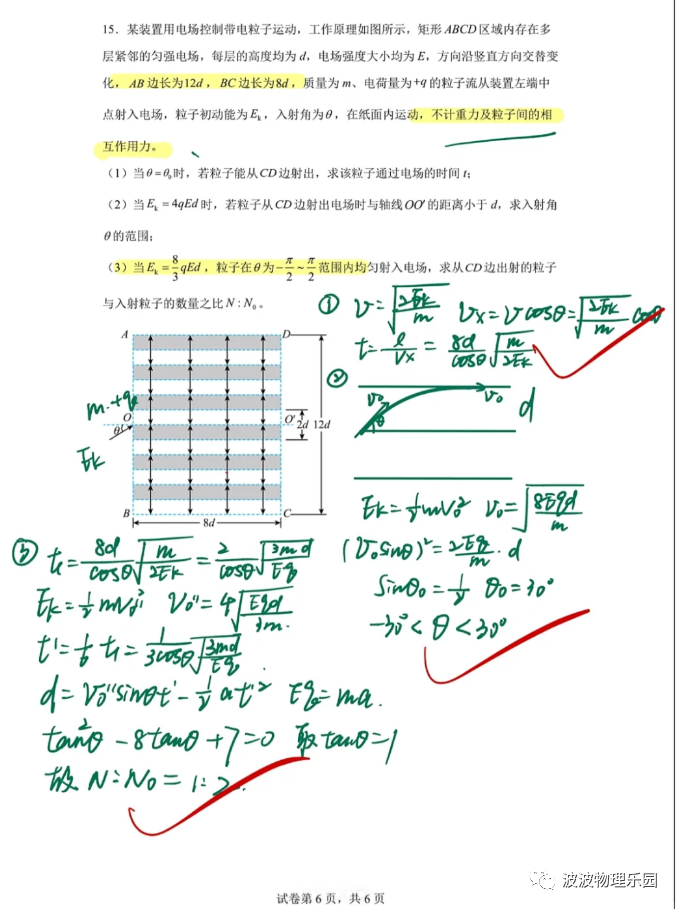 15．某装置用电场控制带电粒子运动，工作原理如图所示，矩形 ABCD 区域内存在多
层紧邻的匀强电场，每层的高度均为 d，电场强度大小均为 E，方向沿竖直方向交替变
化，AB 边长为12d，BC 边长为8d，质量为 m、电荷量为+q 的粒子流从装置左端中
点射入电场，粒子初动能为 Eₖ，入射角为θ，在纸面内运动，不计重力及粒子间的相
互作用力。
（1）当θ=θ₀时，若粒子能从CD 边射出，求该粒子通过电场的时间 t；
（2）当 Eₖ = 4qEd 时，若粒子从CD 边射出电场时与轴线OO′的距离小于 d，求入射角
θ的范围；
（3）当 Eₖ = 8/3 qEd，粒子在θ为 -π/2 ~ π/2 范围内均匀射入电场，求从CD 边出射的粒子
与入射粒子的数量之比 N : N₀。
① v=√(2Eₖ/m) vₓ=vcosθ=√(2Eₖ/m) cosθ
t=l/vₓ=8d/cosθ √(m/2Eₖ)
②
v₀ v₀ d
θ
Eₖ=½mv₀² v₀=√(8Eqd/m)
(v₀sinθ)²=2Eq/m·d
sinθ₀=½ θ₀=30°
-30°<θ<30°
A D
m.+q
O O′ 2d 12d
θ
Eₖ
B C
8d
③ t₁=8d/cosθ √(m/2Eₖ)=2/cosθ √(3md/Eq)
v₀''=4√(Eqd/3m)
t'=1/6 t₁=1/3cosθ √(3md/Eq)
d=v₀''sinθt'-½at'² Eq=ma.
tan²θ-8tanθ+7=0 取tanθ=1
故 N:N₀=1:2.
波波物理乐园
试卷第 6 页，共 6 页